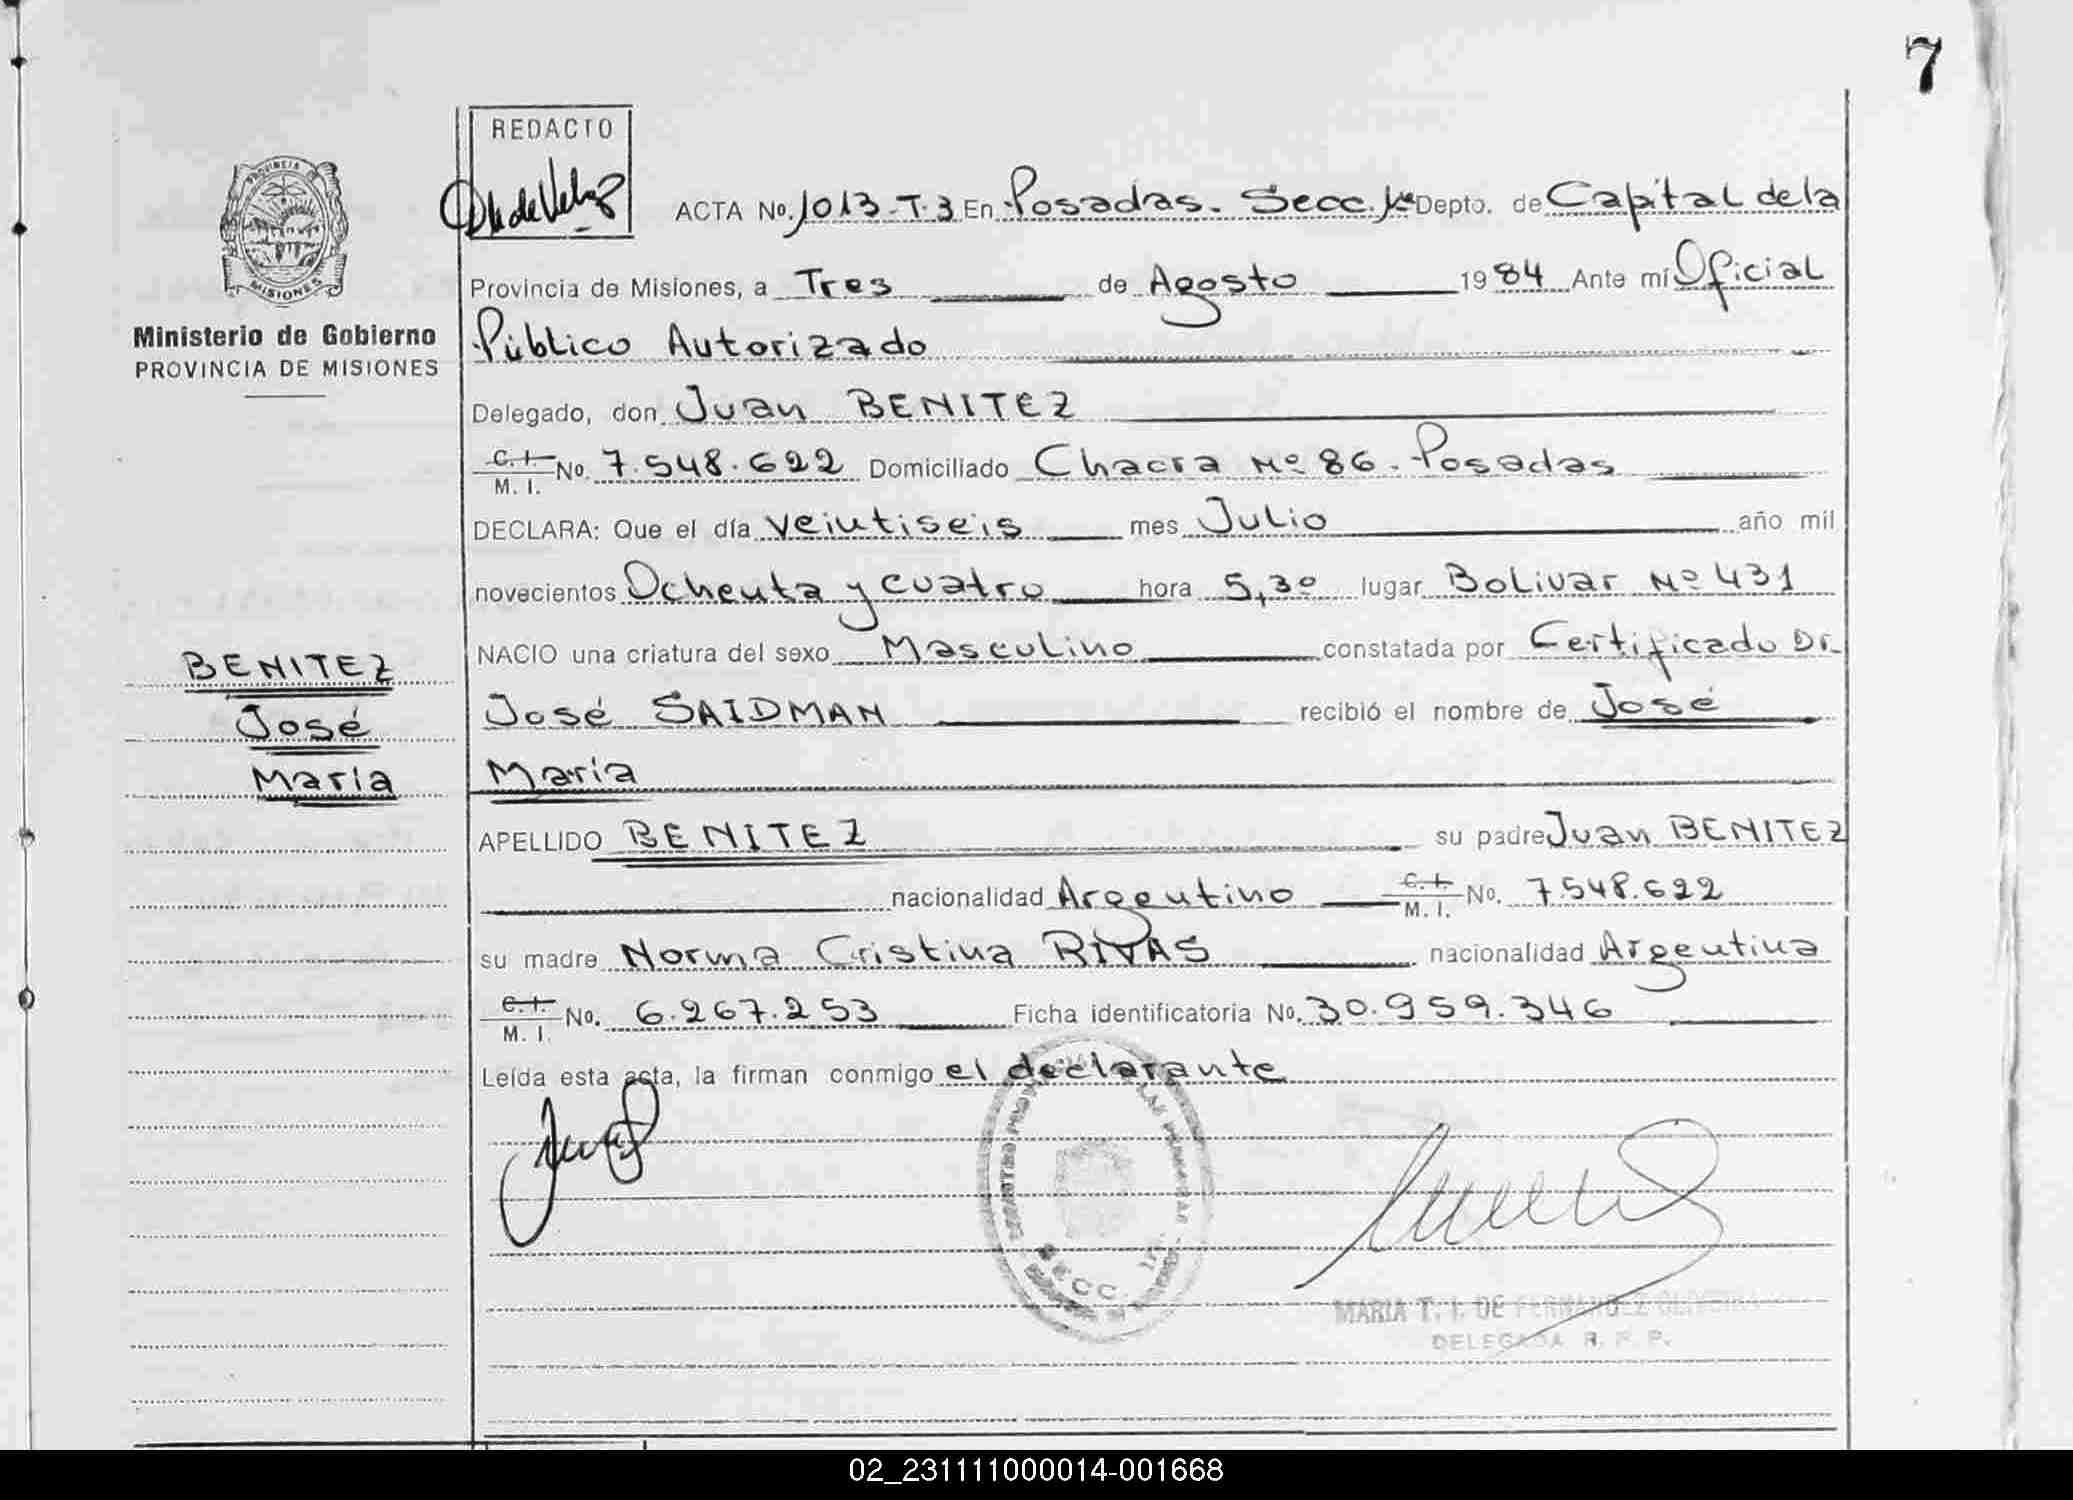 7
REDACTO
ACTA No. 1013-T.3 En Posadas. Secc. 1ª Depto. de Capital de la
Provincia de Misiones, a Tres de Agosto 1984 Ante mí Oficial
Público Autorizado
Delegado, don Juan BENITEZ
C. I. M. I. No. 7.548.622 Domiciliado Chacra Nº 86. Posadas
DECLARA: Que el día veintiseis mes Julio año mil
novecientos Ochenta y cuatro hora 5,30 lugar Bolivar Nº 431
NACIO una criatura del sexo Masculino constatada por Certificado Dr.
José SAIDMAN recibió el nombre de José
María
APELLIDO BENITEZ su padre Juan BENITEZ
nacionalidad Argentino C. I. M. I. No. 7.548.622
su madre Norma Cristina RIVAS nacionalidad Argentina
C. I. M. I. No. 6.267.253 Ficha identificatoria No. 30.959.346
Leída esta acta, la firman conmigo el declarante
PROVINCIA DE
MISIONES
Ministerio de Gobierno
PROVINCIA DE MISIONES
BENITEZ
José
María
SECC. 1ra.
MARIA T. I. DE FERNANDEZ OLIVEIRA
DELEGADA R. P. P.
02_231111000014-001668